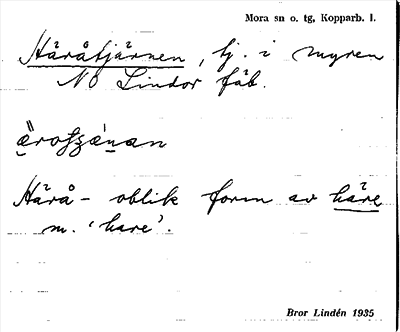 Mora sn o. tg, Kopparb. l.
Häråtjärnen, tj. i myren
NO Lindor fäb.
Härå- oblik form av häre
m. 'hare'.
Bror Lindén 1935